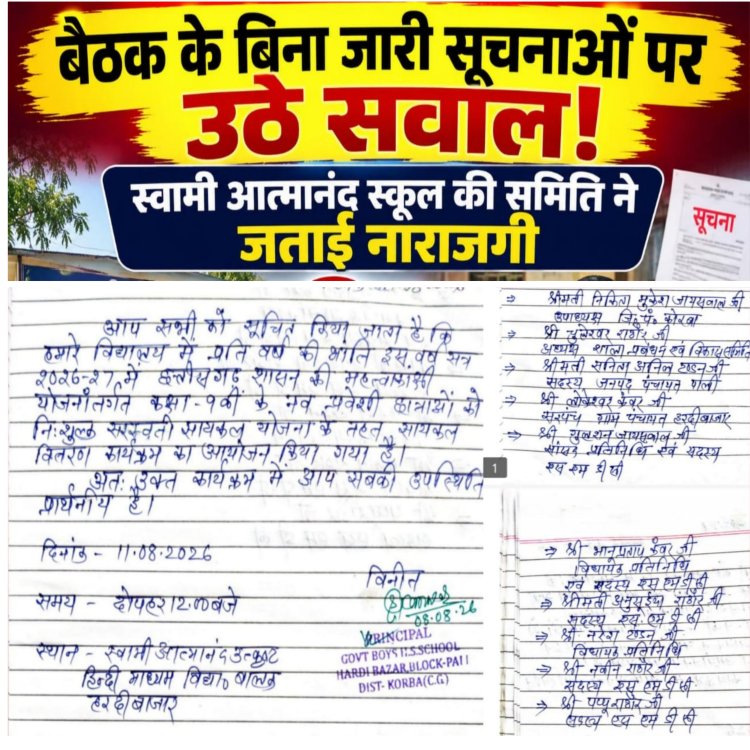 बैठक के बिना जारी सूचनाओं पर
उठे सवाल!
स्वामी आत्मानंद स्कूल की समिति ने
जताई नाराजगी
सूचना
आप सभी को सूचित किया जाता है कि
हमारे विद्यालय में प्रति वर्ष की भांति इस वर्ष सत्र
2026-27 में छत्तीसगढ़ शासन की महत्वाकांक्षी
योजनांतर्गत कक्षा-9वीं के नव प्रवेशी छात्राओं को
निःशुल्क सरस्वती सायकल योजना के तहत सायकल
वितरण कार्यक्रम का आयोजन किया गया है।
अतः उक्त कार्यक्रम में आप सबकी उपस्थिति
प्रार्थनीय है।
दिनांक - 11.08.2026
समय - दोपहर 12.00 बजे
स्थान - स्वामी आत्मानंद उत्कृष्ट
हिन्दी माध्यम विद्या० बालक
हरदीबाजार
विनीत
08.08.26
PRINCIPAL
GOVT BOYS H.S.SCHOOL
HARDI BAZAR,BLOCK-PALI
DIST- KORBA(C.G)
⇒ श्रीमती निकिता मुकेश जायसवाल जी
उपाध्यक्ष जि.पं. कोरबा
⇒ श्री राठौर जी
अध्यक्ष शाला प्रबंधन एवं विकास समिति
⇒ श्रीमती सविता अनिल टण्डन जी
सदस्य जनपद पंचायत पाली
⇒ श्री लोकेश्वर कंवर जी
सरपंच ग्राम पंचायत हरदीबाजार
⇒ श्री जायसवाल जी
सांसद प्रतिनिधि एवं सदस्य
एस एम डी सी
1
⇒ श्री भानुप्रताप कंवर जी
विधायक प्रतिनिधि
एवं सदस्य एस एम डी सी
⇒ श्रीमती अनुसुईया राठौर जी
सदस्य एस एम डी सी
⇒ श्री नरेश टण्डन जी
विधायक प्रतिनिधि
⇒ श्री नवीन राठौर जी
सदस्य एस एम डी सी
⇒ श्री पप्पू राठौर जी
सदस्य एस एम डी सी